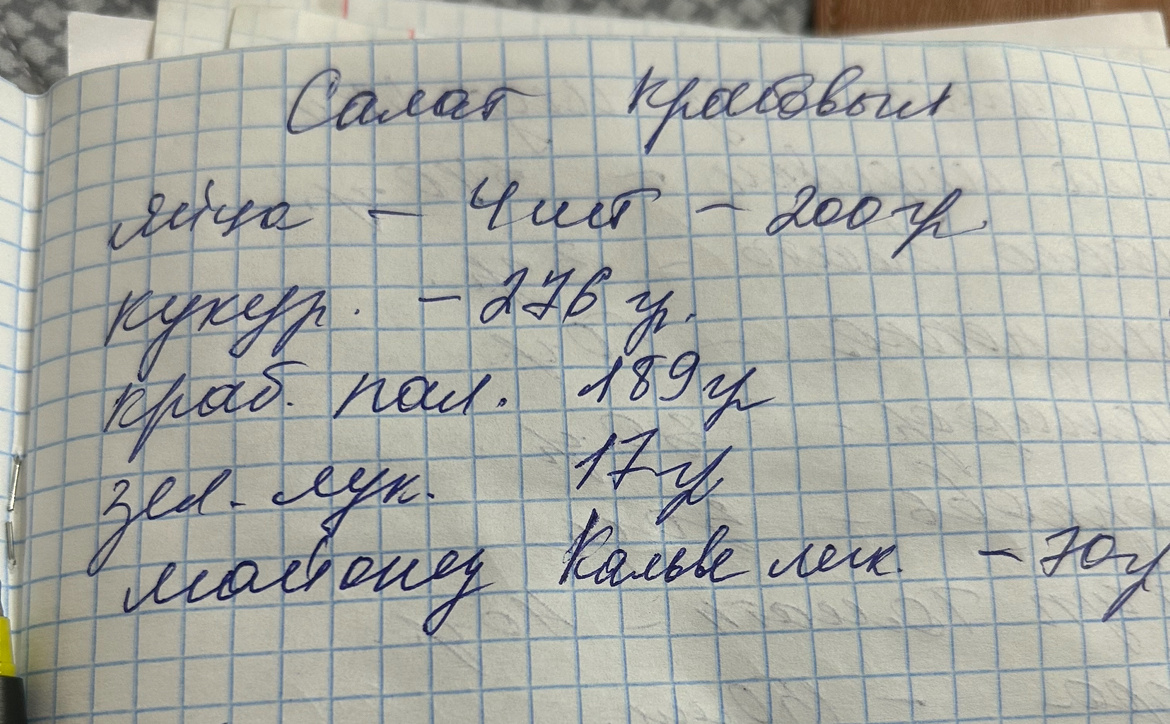 Салат крабовый
яйца - 4 шт - 200 гр.
кукур. - 276 гр.
краб. пал. 189 гр
зел. лук. 17 гр
майонез Кальве легк. - 70 г